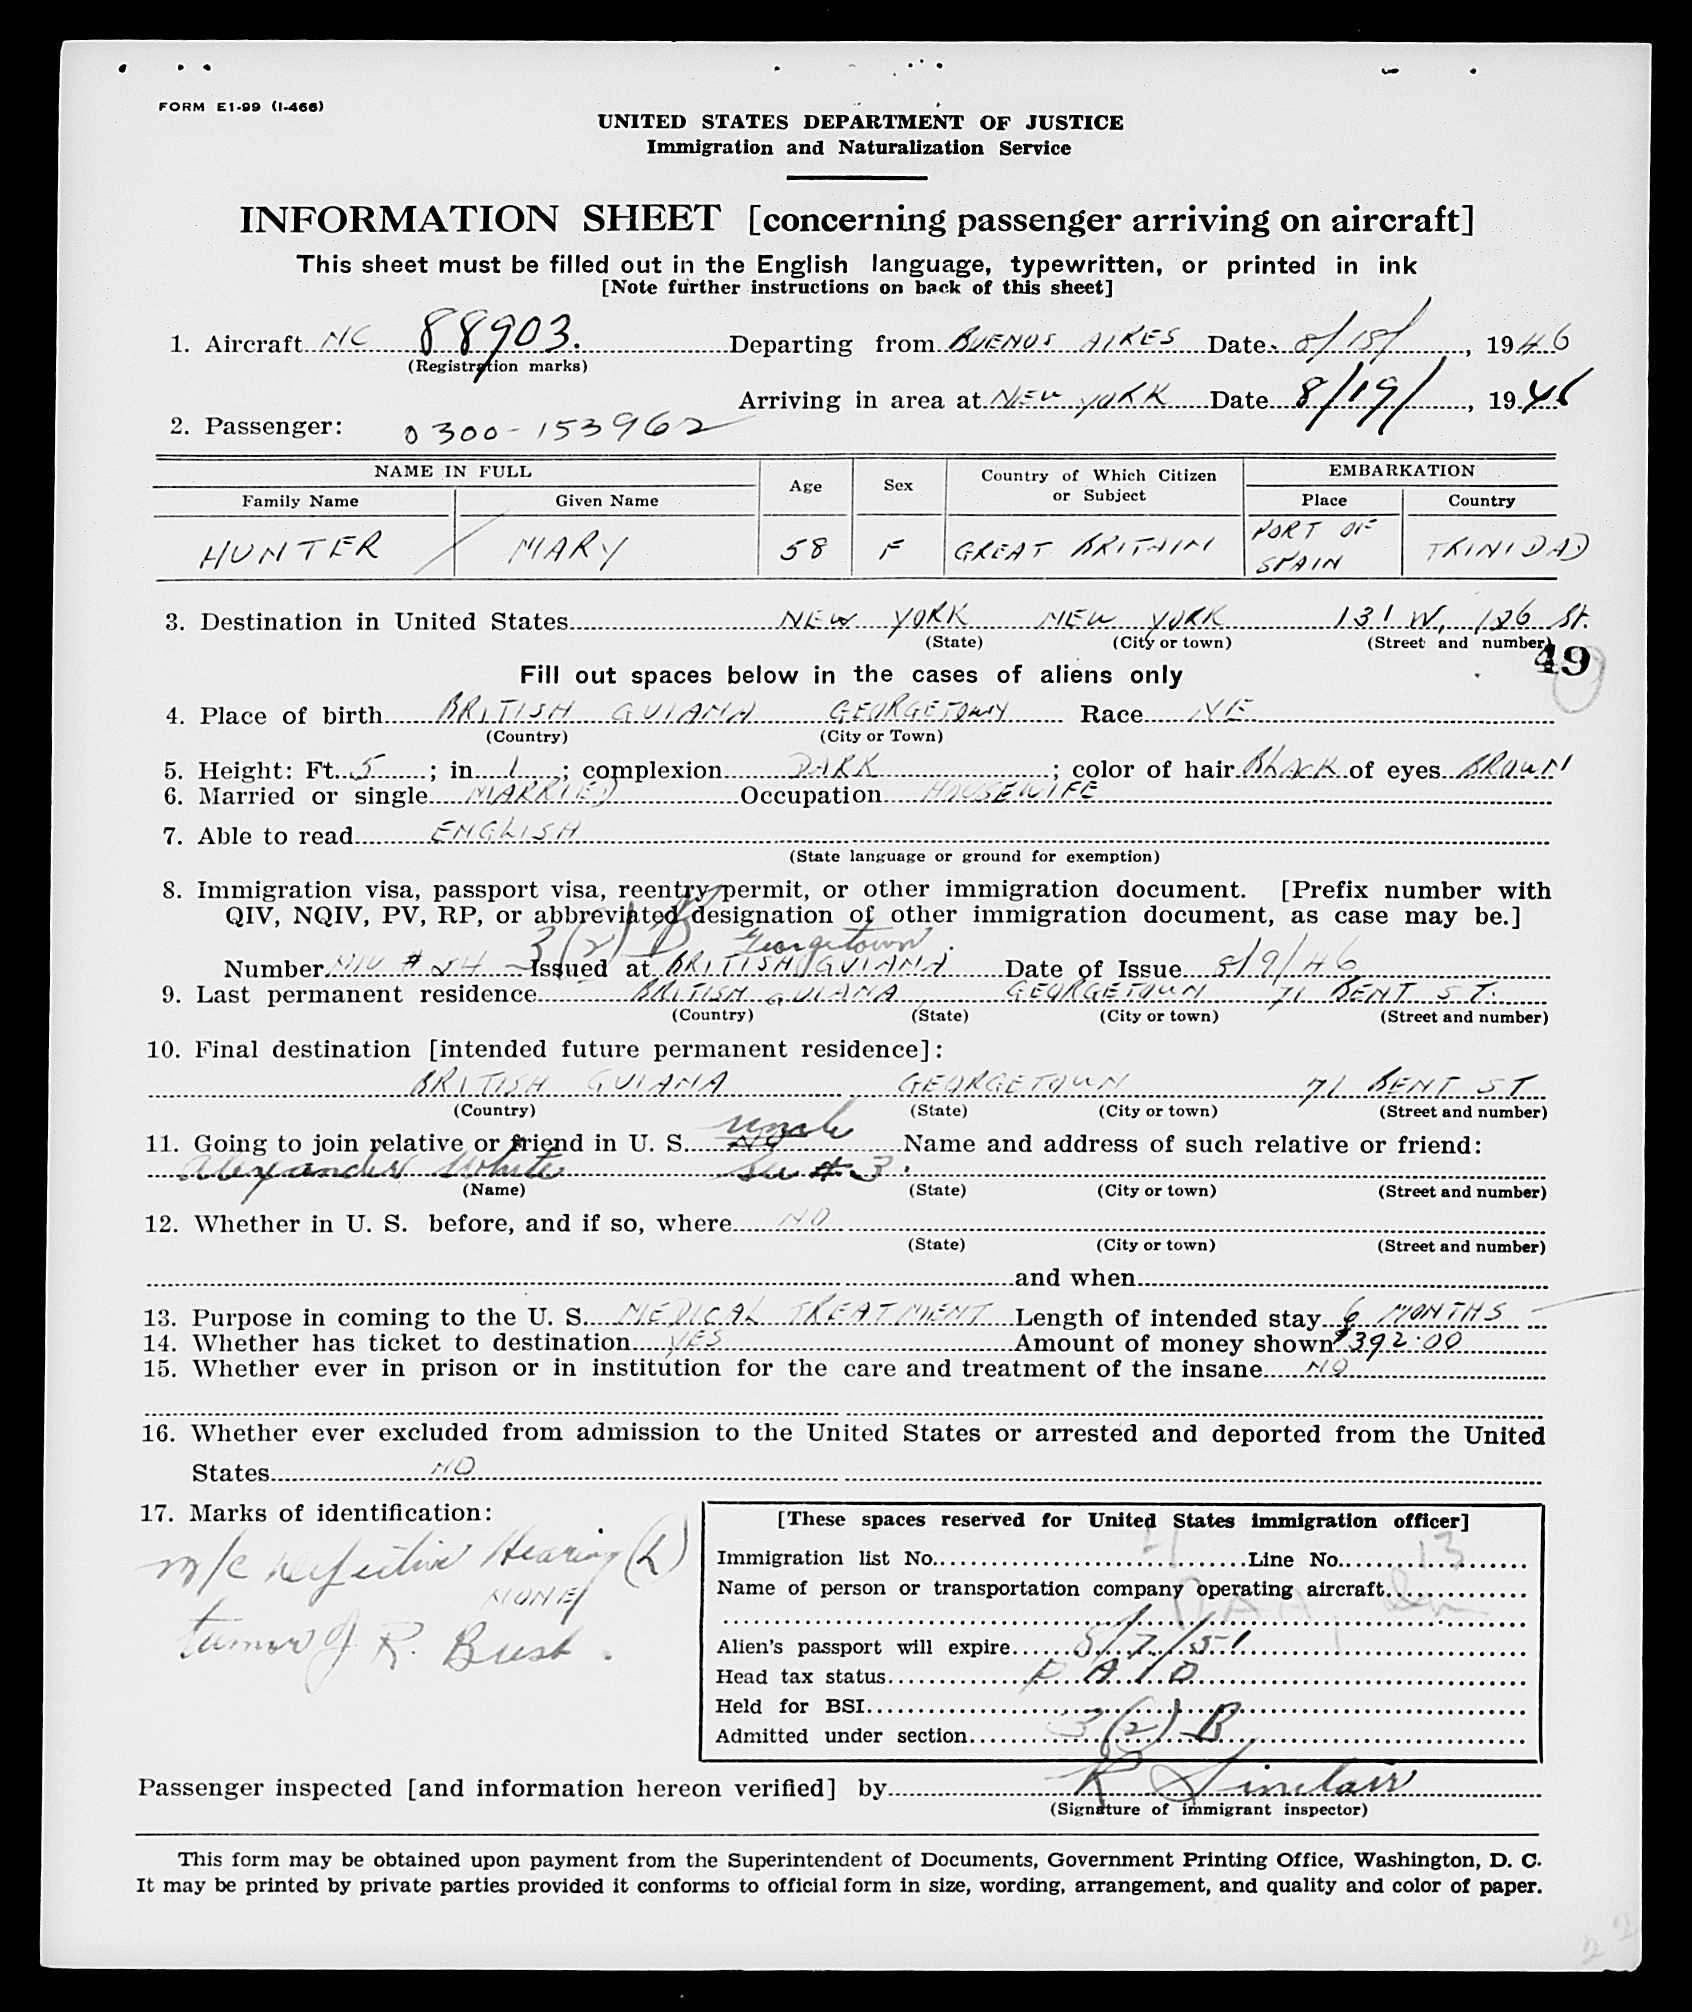 FORM E1-99 (I-466)
UNITED STATES DEPARTMENT OF JUSTICE
Immigration and Naturalization Service
INFORMATION SHEET [concerning passenger arriving on aircraft]
This sheet must be filled out in the English language, typewritten, or printed in ink
[Note further instructions on back of this sheet]
1. Aircraft NC 88903. Departing from BUENOS AIRES Date 8/18/, 1946
(Registration marks)
Arriving in area at NEW YORK Date 8/19/, 1946
2. Passenger: 0300-153962
NAME IN FULL Age Sex Country of Which Citizen or Subject EMBARKATION
Family Name Given Name Place Country
HUNTER / MARY 58 F GREAT BRITAIN PORT OF SPAIN TRINIDAD
3. Destination in United States NEW YORK NEW YORK 131 W. 126 St.
(State) (City or town) (Street and number)
49
Fill out spaces below in the cases of aliens only
4. Place of birth BRITISH GUIANA GEORGETOWN Race NE
(Country) (City or Town)
5. Height: Ft. 5; in. 1; complexion DARK; color of hair BLACK of eyes BROWN
6. Married or single MARRIED Occupation HOUSEWIFE
7. Able to read ENGLISH
(State language or ground for exemption)
8. Immigration visa, passport visa, reentry permit, or other immigration document. [Prefix number with
QIV, NQIV, PV, RP, or abbreviated designation of other immigration document, as case may be.]
3(2)B Georgetown
Number NIV # 84 Issued at BRITISH GUIANA Date of Issue 8/9/46
9. Last permanent residence BRITISH GUIANA GEORGETOWN 71 BENT ST.
(Country) (State) (City or town) (Street and number)
10. Final destination [intended future permanent residence]:
BRITISH GUIANA GEORGETOWN 71 BENT ST
(Country) (State) (City or town) (Street and number)
uncle
11. Going to join relative or friend in U. S. NO Name and address of such relative or friend:
Alexander White See # 3.
(Name) (State) (City or town) (Street and number)
12. Whether in U. S. before, and if so, where NO
(State) (City or town) (Street and number)
and when
13. Purpose in coming to the U. S. MEDICAL TREATMENT Length of intended stay 6 MONTHS
14. Whether has ticket to destination YES Amount of money shown $392.00
15. Whether ever in prison or in institution for the care and treatment of the insane NO
16. Whether ever excluded from admission to the United States or arrested and deported from the United
States NO
17. Marks of identification:
m/c Defective Hearing (L)
NONE
tumor of R. Breast.
[These spaces reserved for United States immigration officer]
Immigration list No. 4 Line No. 13
Name of person or transportation company operating aircraft
PAA
Alien's passport will expire 8/7/51
Head tax status PAID
Held for BSI
Admitted under section 3(2)B
Passenger inspected [and information hereon verified] by R Sinclair
(Signature of immigrant inspector)
This form may be obtained upon payment from the Superintendent of Documents, Government Printing Office, Washington, D. C.
It may be printed by private parties provided it conforms to official form in size, wording, arrangement, and quality and color of paper.
22